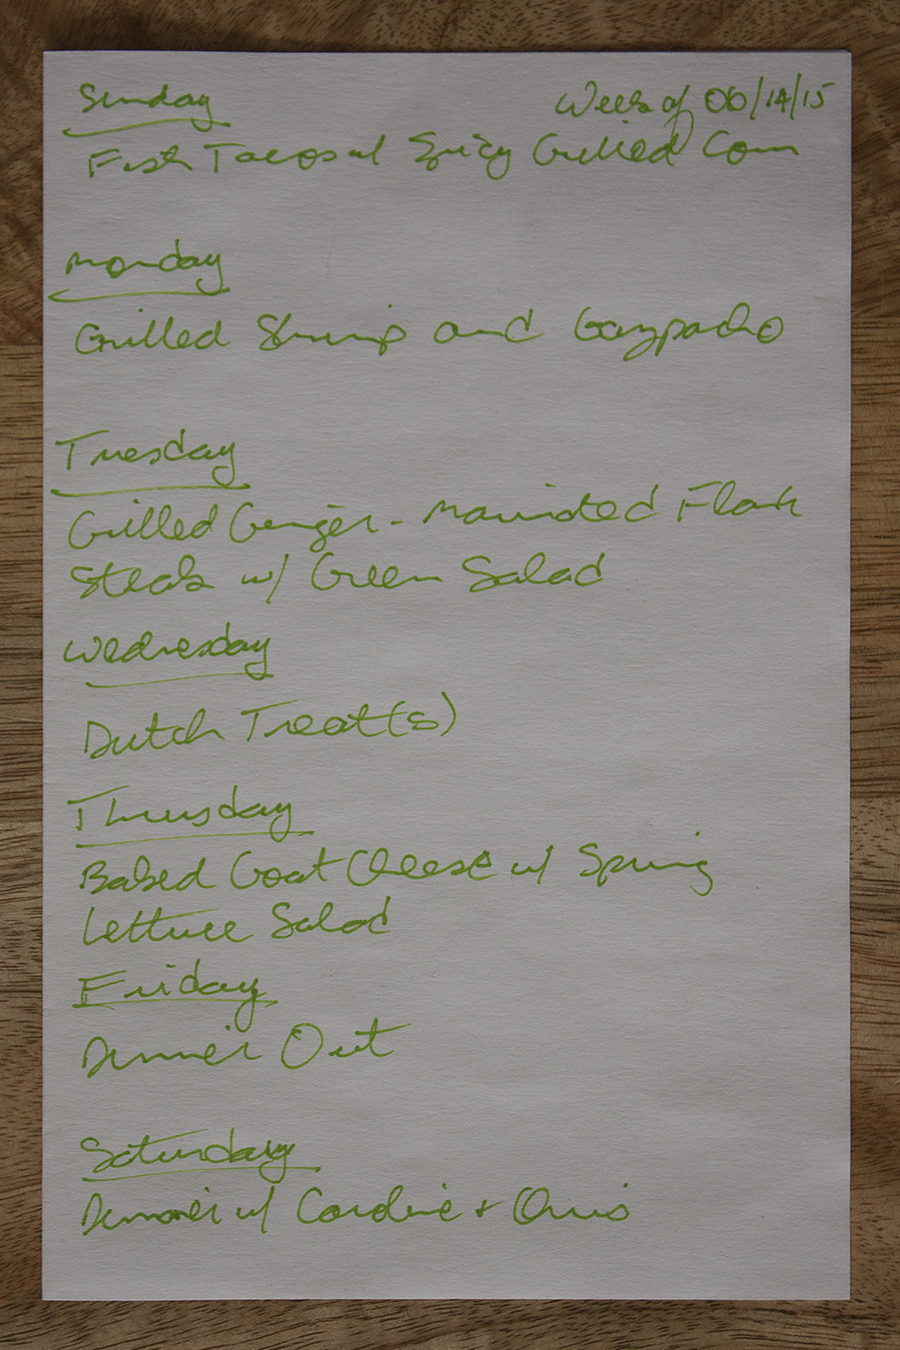 Sunday Week of 06/14/15
Fish Tacos w/ Spicy Grilled Corn
Monday
Grilled Shrimp and Gazpacho
Tuesday
Grilled Ginger-Marinated Flank
Steak w/ Green Salad
Wednesday
Dutch Treat(s)
Thursday
Baked Goat Cheese w/ Spring
Lettuce Salad
Friday
Dinner Out
Saturday
Dinner w/ Caroline + Chris